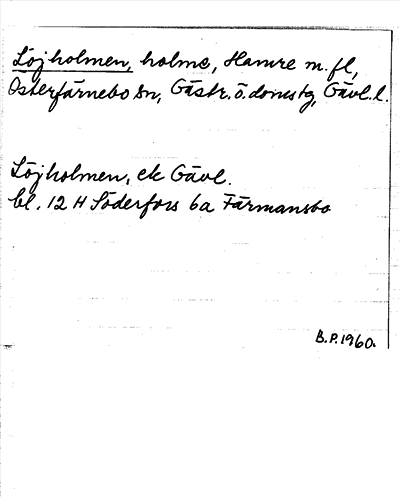 Löjholmen, holme, Hamre m.fl,
Österfärnebo sn, Gästr. ö. domstg, Gävl. l.
Löjholmen, ek Gävl.
bl. 12 H Söderfors 6a Färmansbo
B.P. 1960.